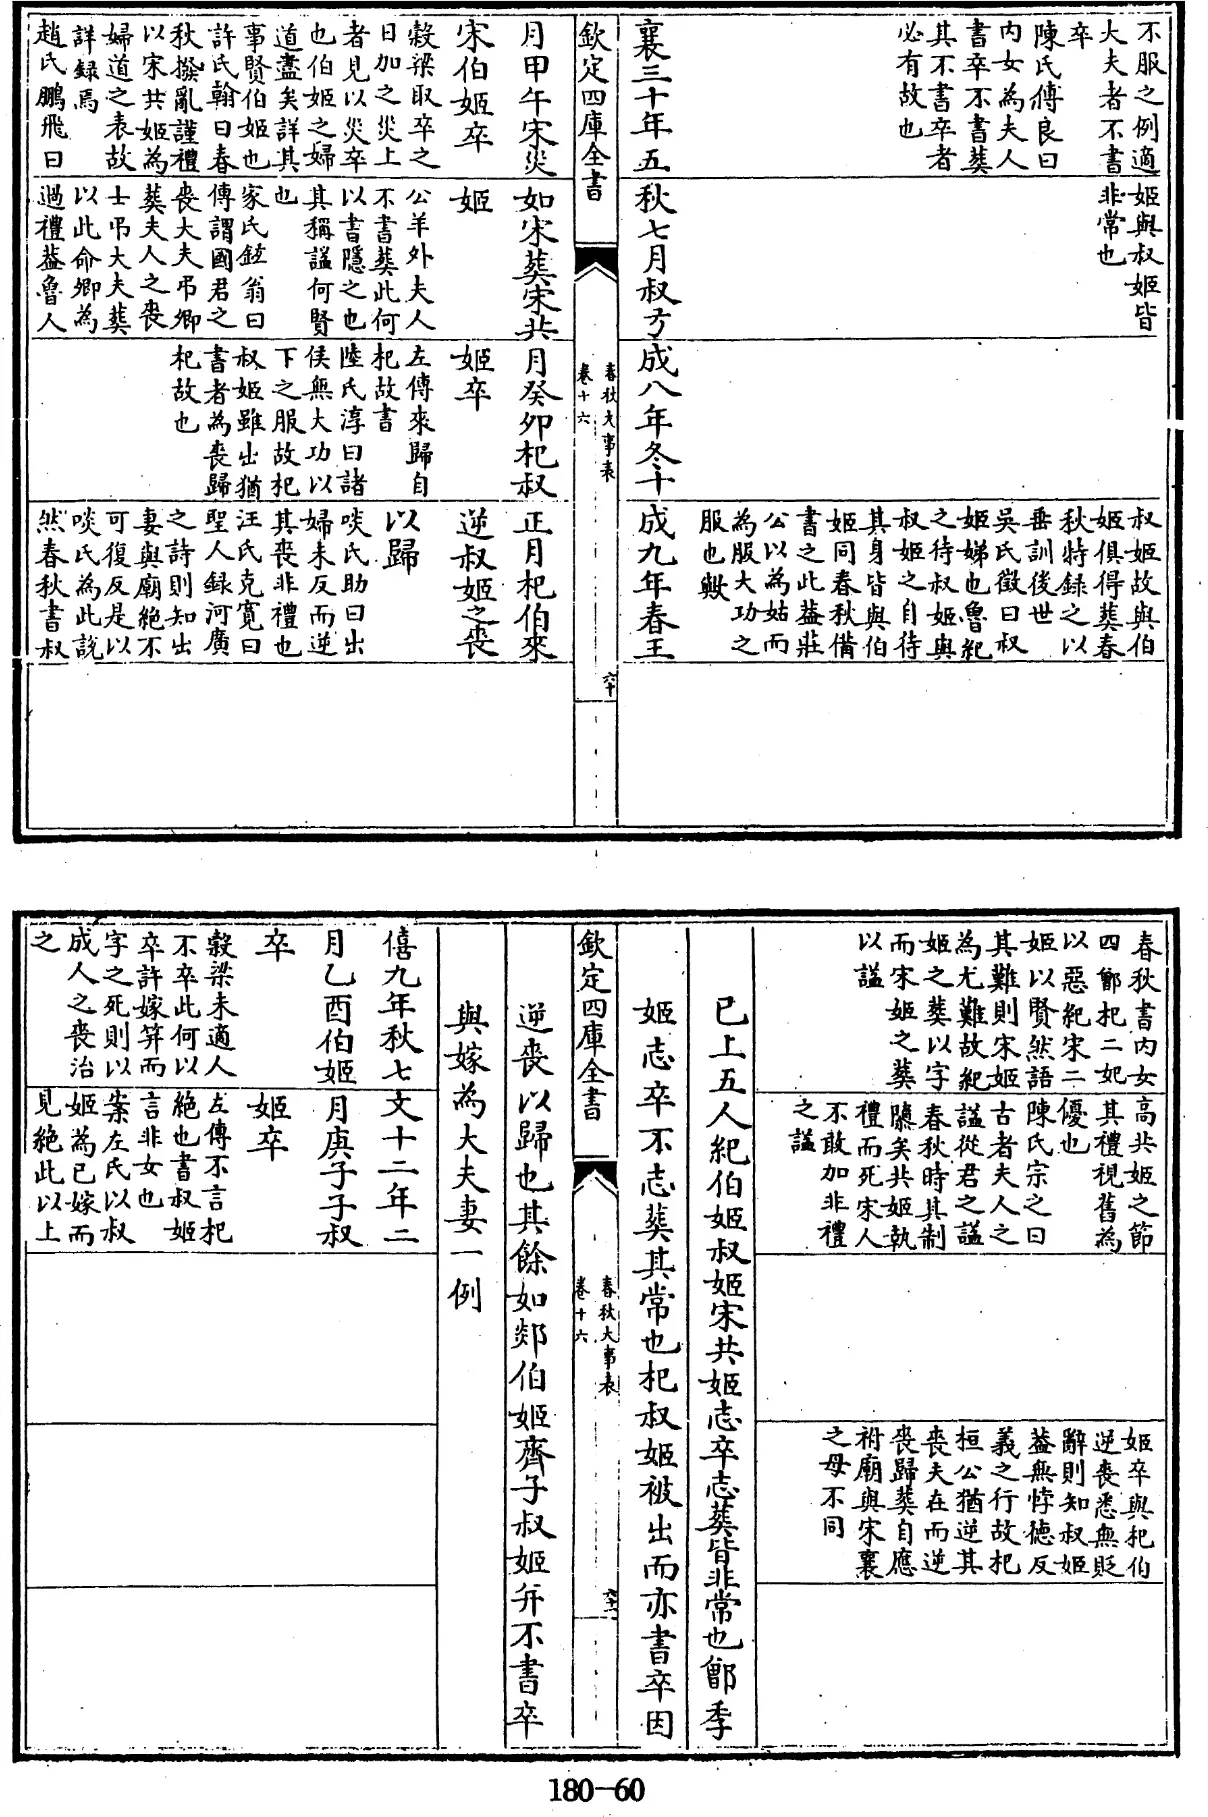 不服之例適
大夫者不書
卒
陳氏傅良曰
內女為夫人
書卒不書葬
其不書卒者
必有故也
襄三十年五
姬與叔姬皆
非常也
秋七月叔弓
成八年冬十
叔姬故與伯
姬俱得葬春
秋特錄之以
垂訓後世
吳氏徵曰叔
姬娣也魯紀
之待叔姬與
叔姬之自待
其身皆與伯
姬同春秋備
書之此葢莊
公以為姑而
為服大功之
服也歟
成九年春王
欽定四庫全書
春秋大事表
卷十六
六十
月甲午宋災
宋伯姬卒
穀梁取卒之
日加之災上
者見以災卒
也伯姬之婦
道盡矣詳其
事賢伯姬也
許氏翰曰春
秋撥亂謹禮
以宋共姬為
婦道之表故
詳錄焉
趙氏鵬飛曰
如宋葬宋共
姬
公羊外夫人
不書葬此何
以書隱之也
其稱諡何賢
也
家氏鉉翁曰
傳謂國君之
喪大夫弔卿
葬夫人之喪
士弔大夫葬
以此命卿為
過禮葢魯人
月癸卯杞叔
姬卒
左傳來歸自
杞故書
陸氏淳曰諸
侯無大功以
下之服故杞
叔姬雖出猶
書者為喪歸
杞故也
正月杞伯來
逆叔姬之喪
以歸
啖氏助曰出
婦未反而逆
其喪非禮也
汪氏克寬曰
聖人錄河廣
之詩則知出
妻與廟絕不
可復反是以
啖氏為此說
然春秋書叔
春秋書內女
四鄫杞二妃
以惡紀宋二
姬以賢然語
其難則宋姬
為尤難故紀
姬之葬以字
而宋姬之葬
以諡
高共姬之節
其禮視舊為
優也
陳氏宗之曰
古者夫人之
諡從君之諡
春秋時其制
隳矣共姬執
禮而死宋人
不敢加非禮
之諡
姬卒與杞伯
逆喪悉無貶
辭則知叔姬
葢無悖德反
義之行故杞
桓公猶逆其
喪夫在而逆
喪歸葬自應
祔廟與宋襄
之母不同
已上五人紀伯姬叔姬宋共姬志卒志葬皆非常也鄫季
姬志卒不志葬其常也杞叔姬被出而亦書卒因
欽定四庫全書
春秋大事表
卷十六
逆喪以歸也其餘如郯伯姬齊子叔姬并不書卒
與嫁為大夫妻一例
僖九年秋七
月乙酉伯姬
卒
穀梁未適人
不卒此何以
卒許嫁筓而
字之死則以
成人之喪治
之
文十二年二
月庚子子叔
姬卒
左傳不言杞
絕也書叔姬
言非女也
案左氏以叔
姬為已嫁而
見絕此以上
180-60